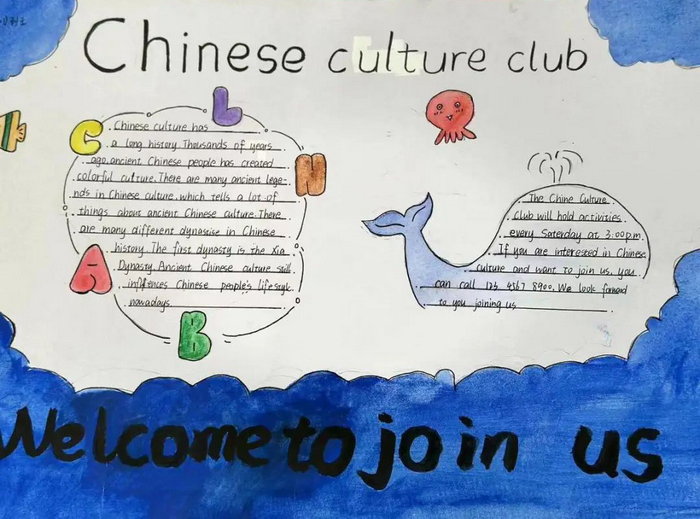 Chinese culture club
L
C
N
A
B
Chinese culture has
a long history. Thousands of years
ago, ancient Chinese people has created
colorful culture. There are many ancient lege-
nds in Chinese culture, which tells a lot of
things about ancient Chinese culture. There
are many different dynastise in Chinese
history. The first dynasty is the Xia
Dynasty. Ancient Chinese culture still
influences Chinese people's lifestyle
nowadays.
The Chine Culture
Club will hold activities
every Saterday at 3:00p.m.
If you are interested in Chinese
culture and want to join us, you
can call 123 4567 8900. We look forward
to you joining us
Welcome to join us